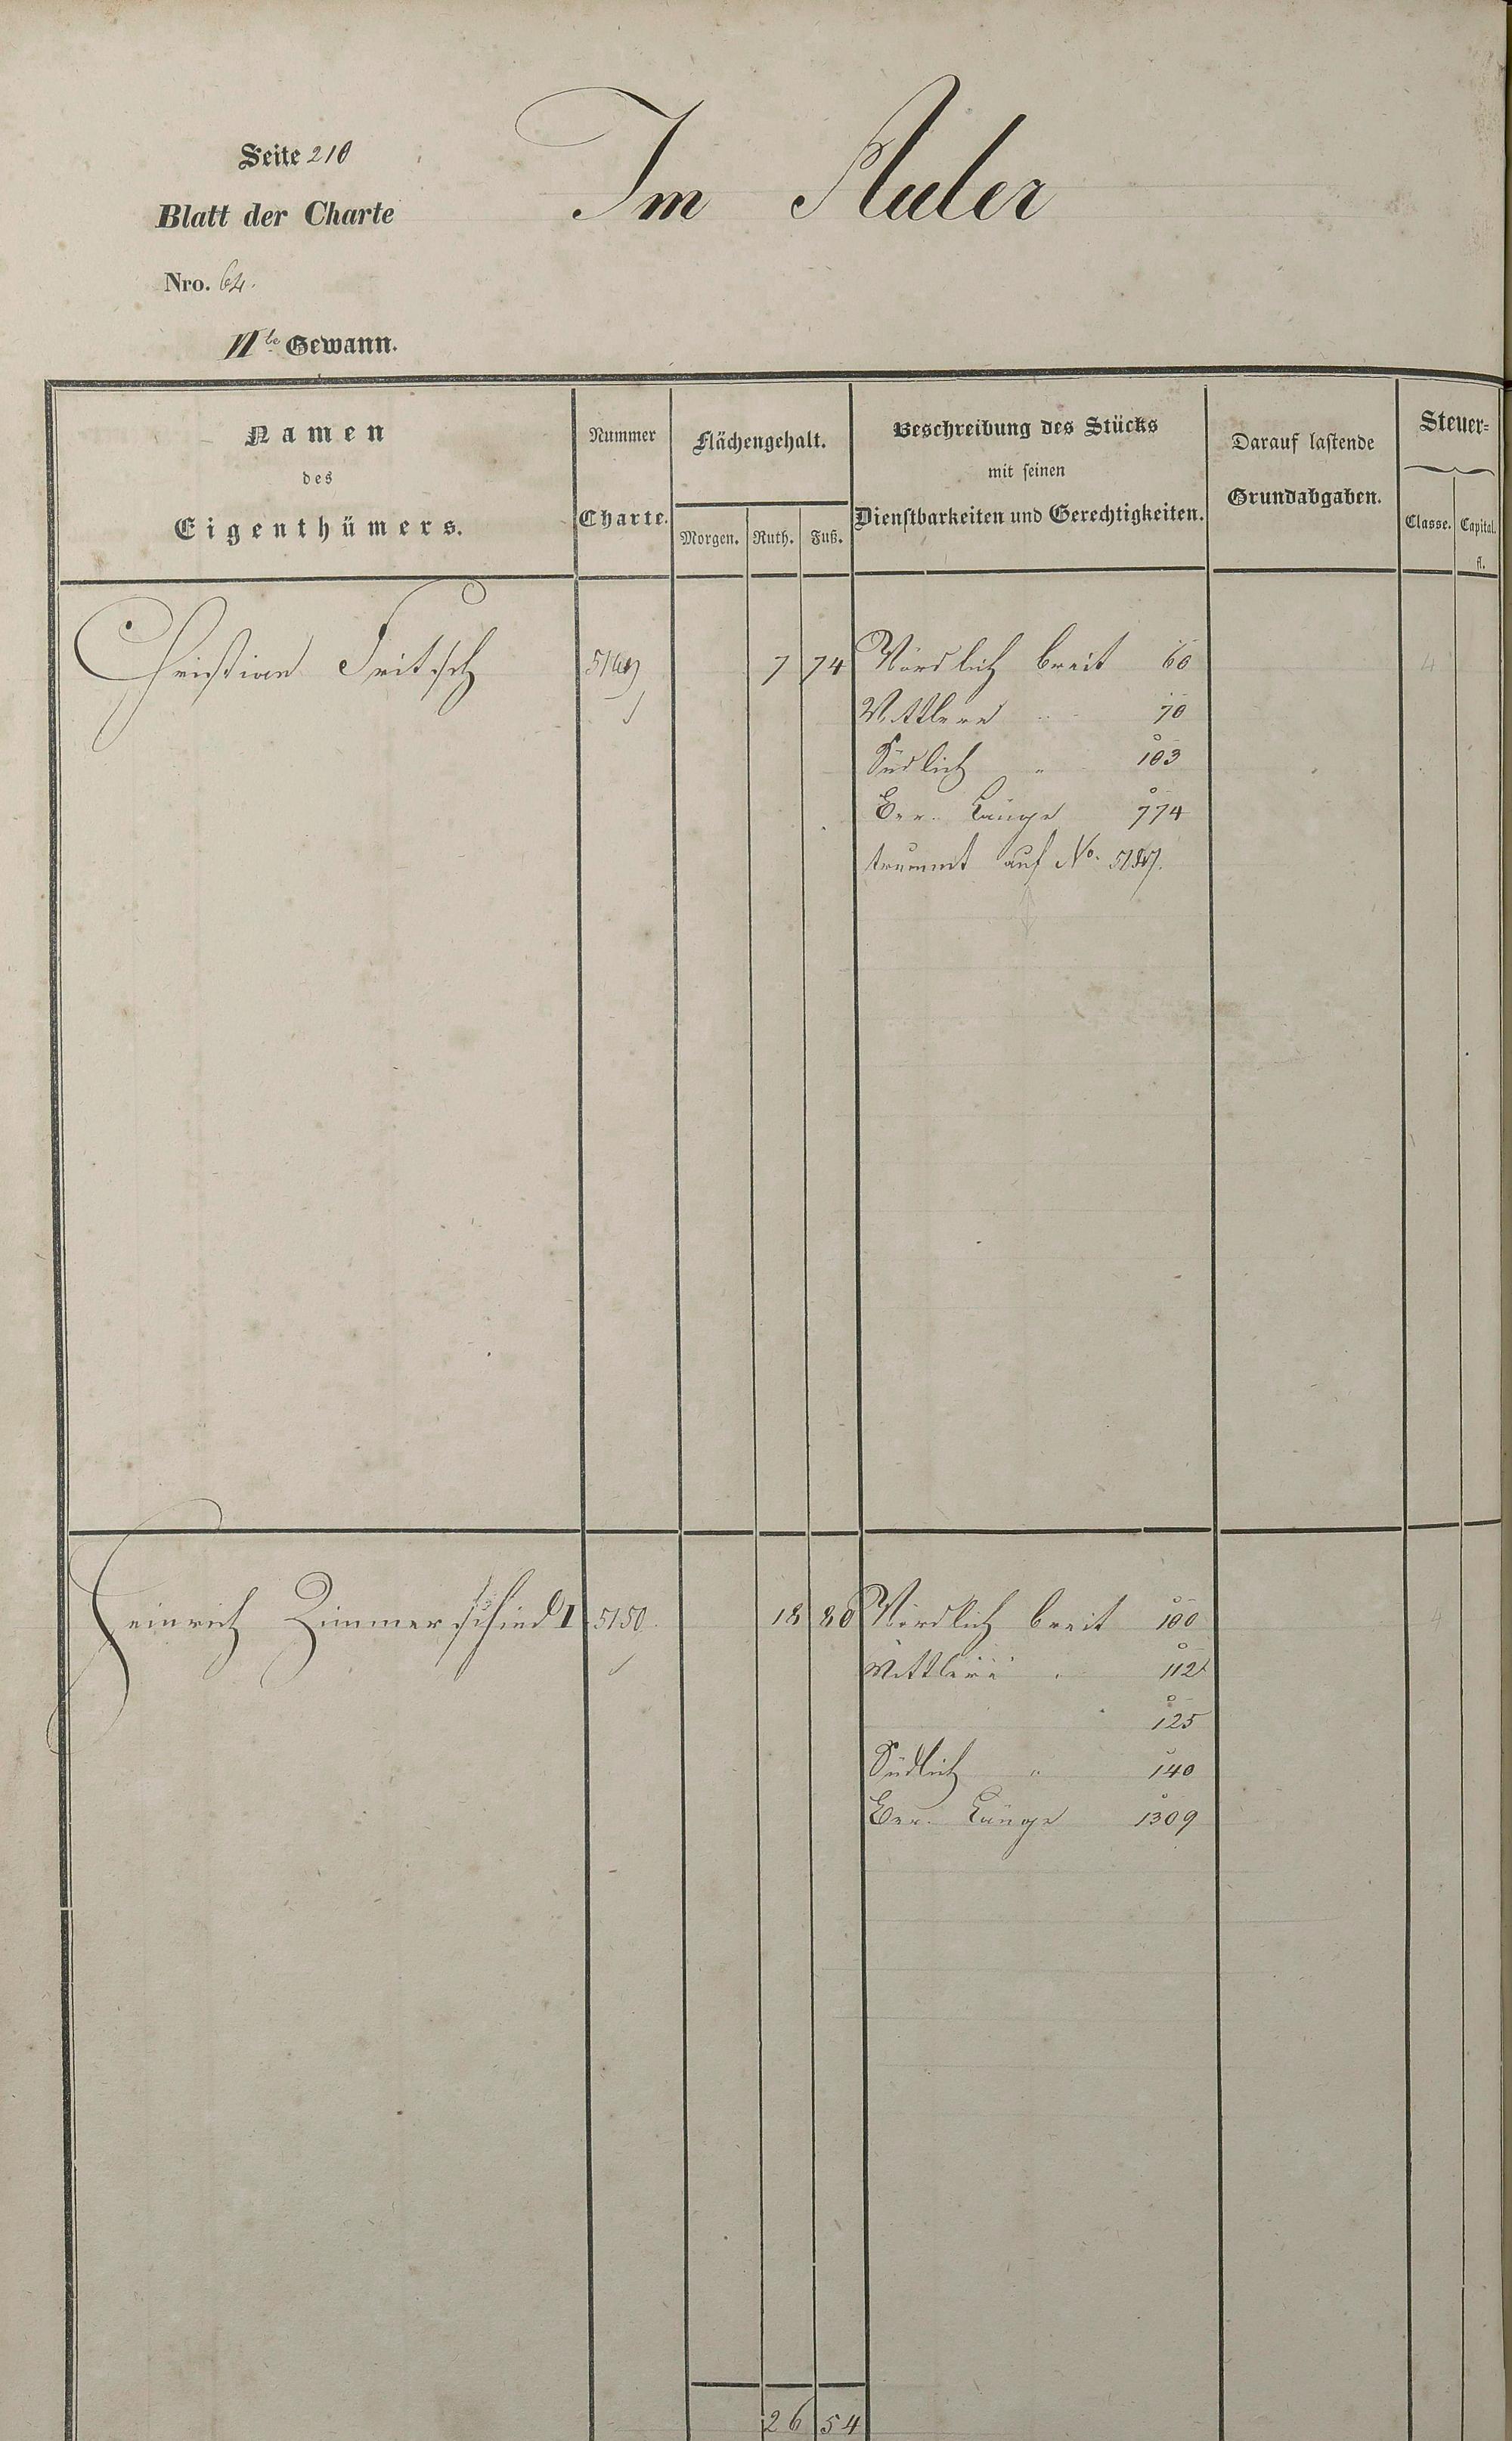 Seite 210
Im Auler
Blatt der Charte
Nro. 64.
VI te Gewann.
Namen
des
Eigenthümers.
Nummer
Charte.
Flächengehalt.
Morgen. Ruth. Fuß.
Beschreibung des Stücks
mit seinen
Dienstbarkeiten und Gerechtigkeiten.
Darauf lastende
Grundabgaben.
Steuer-
Classe. Capital.
fl.
Christian Fritsch 5149 7 74 Nördlich breit 60 4
Mittlere " 70
Südlich " 103
Ger. Länge 774
trummt auf No.
Heinrich Zimmerschied I 5150 18 80 Nördlich breit 100 4
Mittlere " 112
125
Südlich " 140
Ger. Länge 1309
26 54